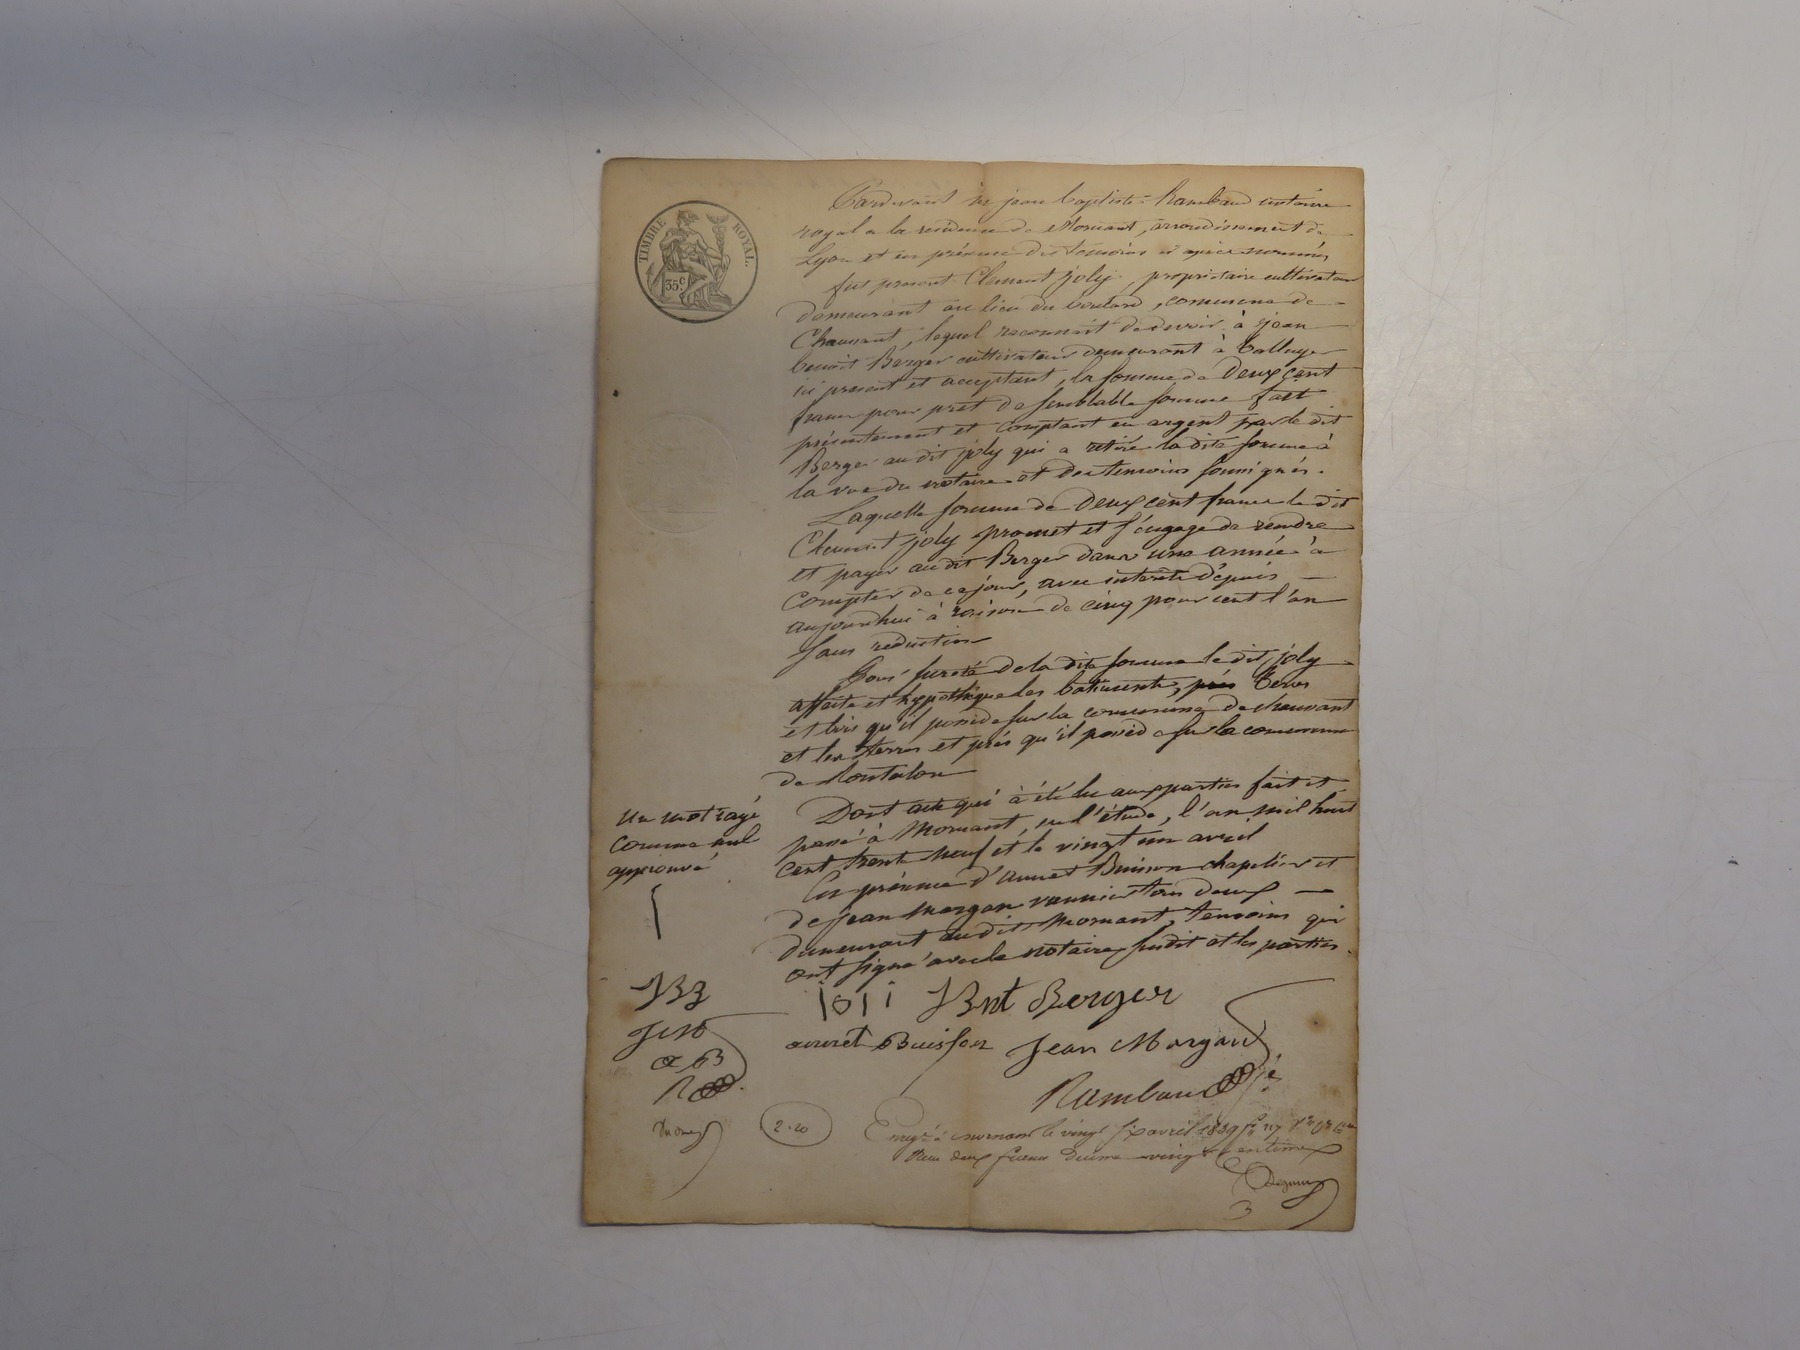 TIMBRE ROYAL.
35 c
Pardevant Me jean baptiste Rambaud notaire
royal a la residence de Mornant, arrondissement de
Lyon et en présence des témoins ci après nommés
fut present Clement joly, propriétaire cultivateur
demeurant au lieu du boulard, commune de
Chaussant, lequel reconnait de devoir à jean
benoit Berger cultivateur demeurant à talluyer
ici present et acceptant, la somme de Deux cent
francs pour prêt de semblable somme fait
présentement et comptant en argent par le dit
Berger au dit joly qui a retiré la dite somme à
la vue du notaire et des temoins soussignés.
Laquelle somme de Deux cent francs le dit
Clement joly promet et s'engage de rendre
et payer au dit Berger dans une année à
compter de ce jour, avec intérêts depuis
aujourdhui à raison de cinq pour cent l'an
sans réduction
Pour sureté de la dite somme le dit joly
affecte et hypothèque les batiments, prés terres
et bois qu'il possède sur la commune de chaussant
et les terres et prés qu'il possède sur la commune
de Rontalon
Dont acte qui à été lu aux parties fait et
passé à Mornant, en l'étude, l'an mil huit
cent trente neuf et le vingt un avril
En présence d'annet Buisson chapelier et
de jean Margan vannier tous deux
demeurant au dit Mornant, temoins qui
ont signé avec le notaire susdit et les parties.
un mot rayé
comme nul
approuvé
J
JBB
JM
a B
R
joli JBnt Berger
annet Buisson Jean Margan
Rambaud
2.20
Enregé à mornant le vingt six avril 1839 fo 117
Reçu deux francs decime vingt centimes